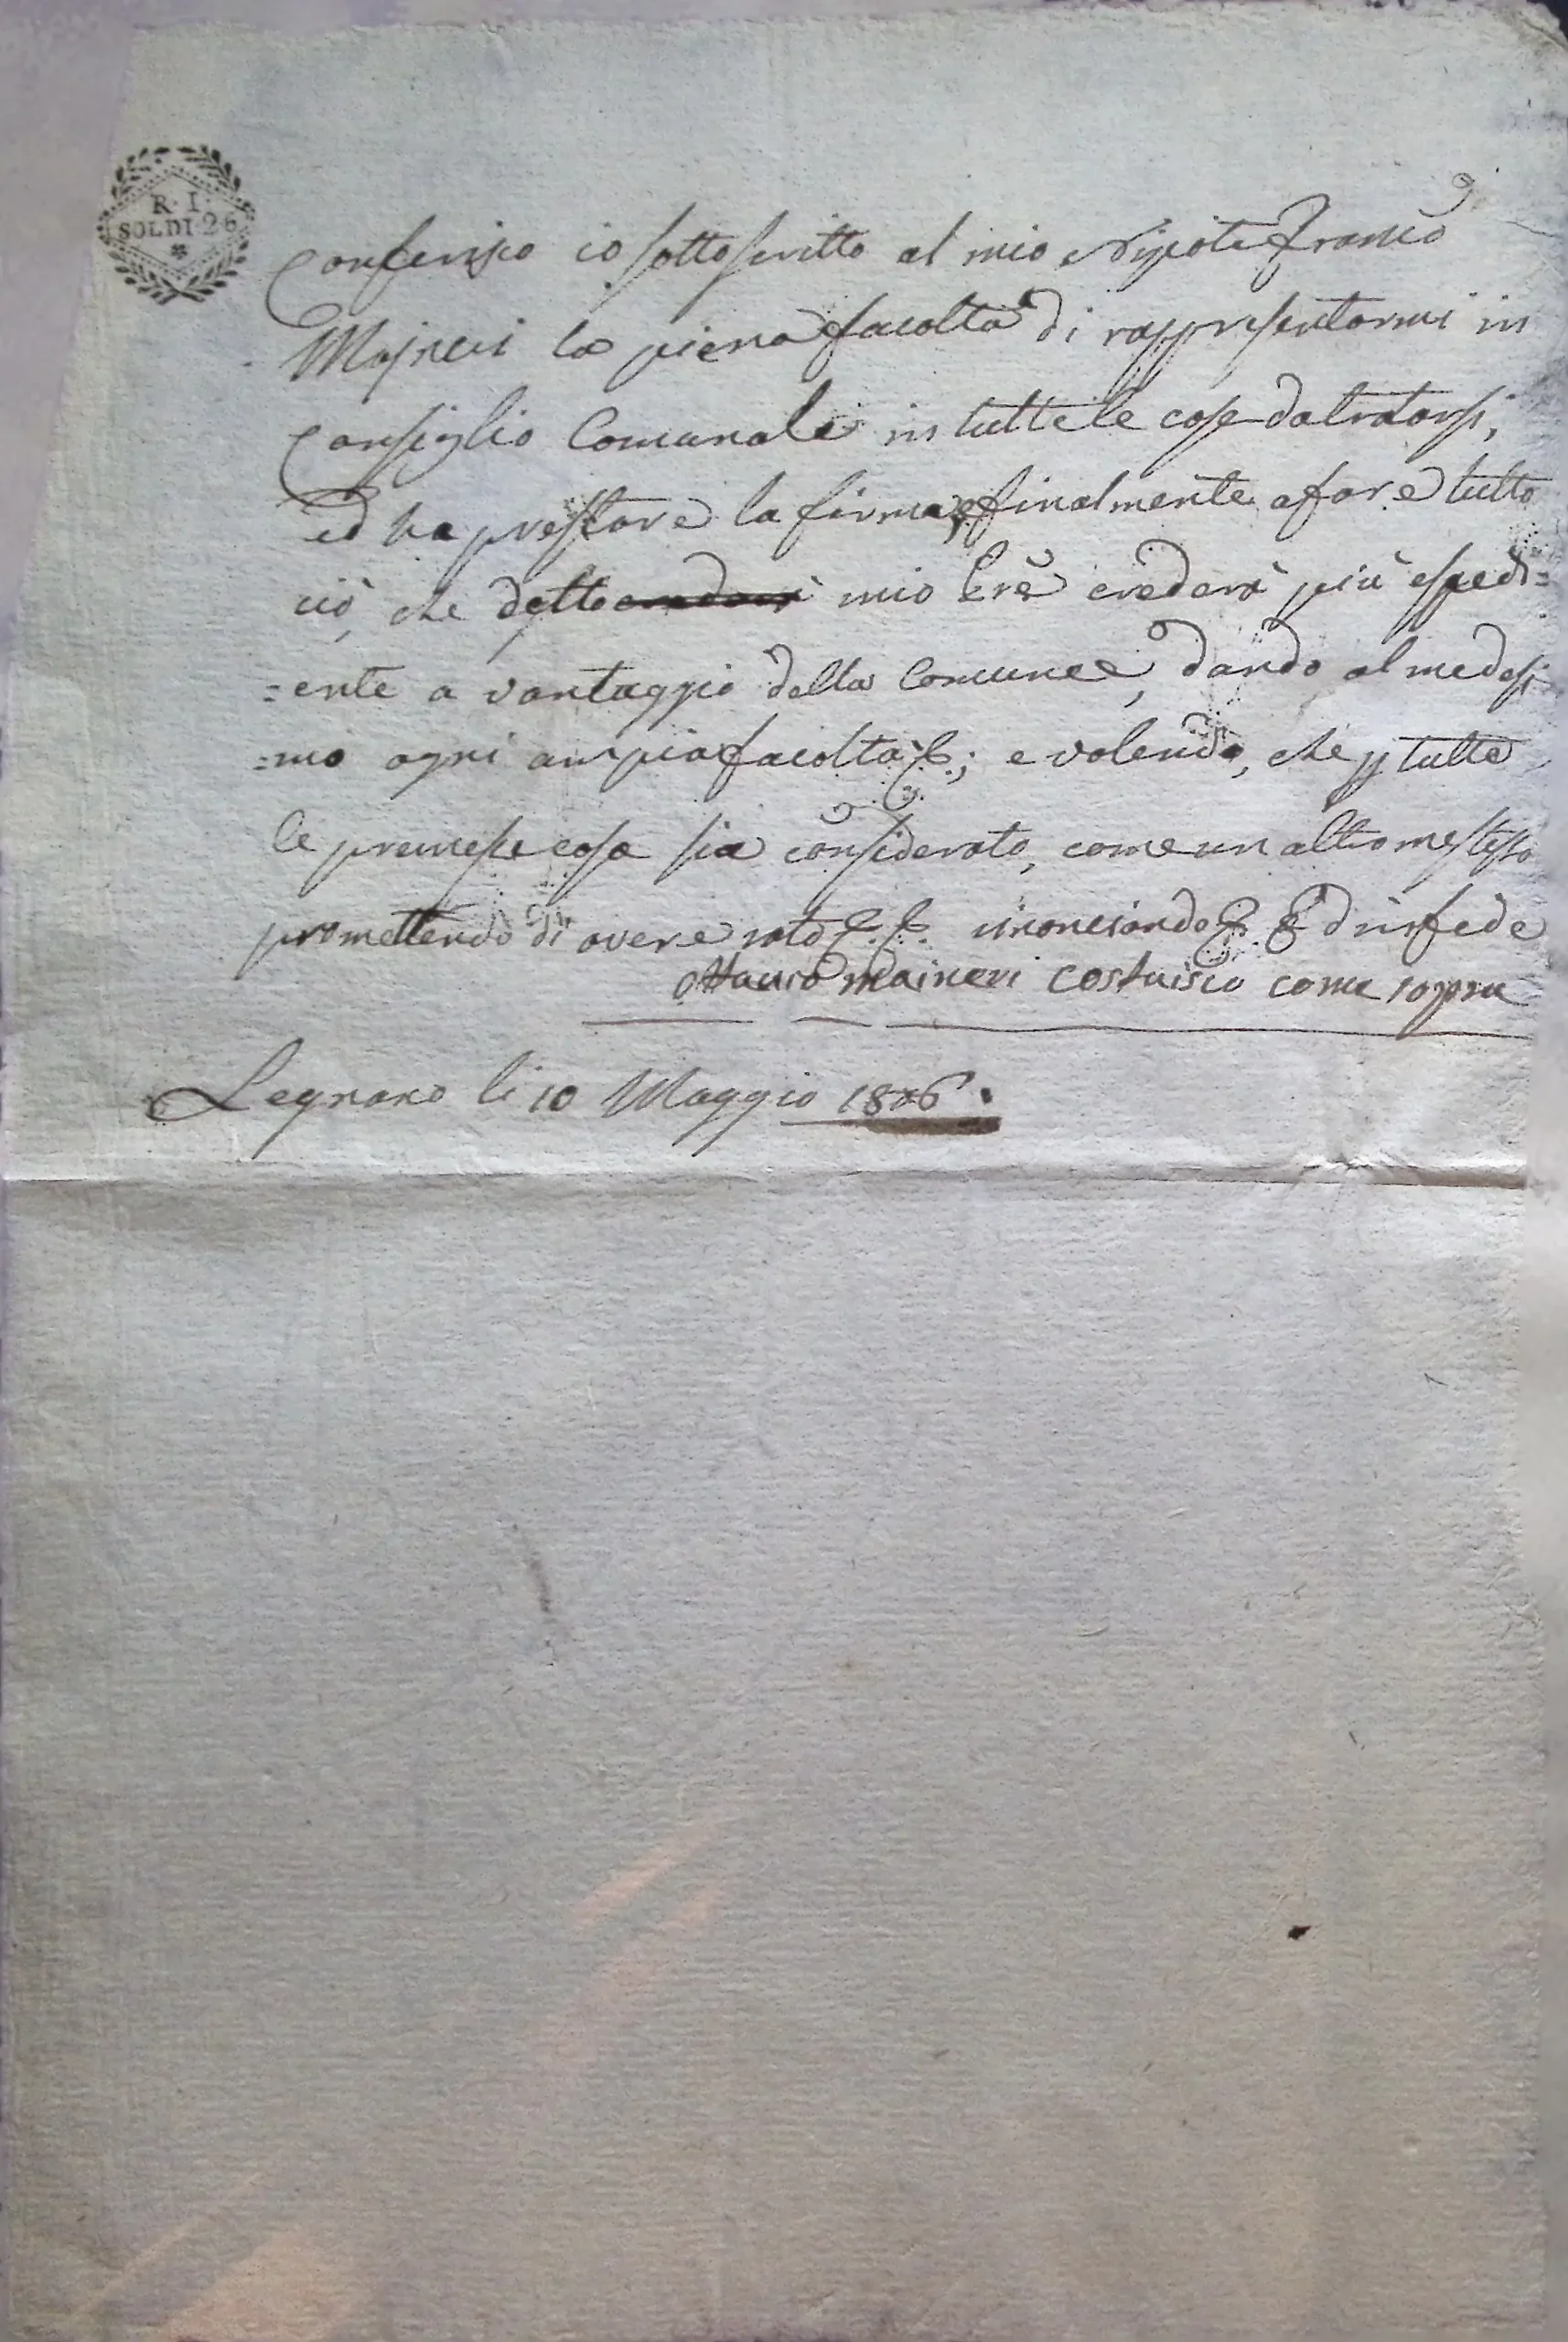 R. I.
SOLDI 26
Conferisco io sottoscritto al mio Nipote Franco
Majneri la piena facoltà di rappresentarmi in
Consiglio Comunale in tutte le cose da tratarsi,
ed ha prestare la firma, e finalmente a fare tutto
ciò, che detto mio credera più espedi=
=ente a vantaggio della Comune, dando al medesi
=mo ogni ampia facoltà &; e volendo, che p tutte
le premesse cose sia considerato, come un altro me stesso
promettendo di avere rato &. &. rinonciando &. & Ed in fede
Ottavio Maineri costuisco come sopra
Legnano li 10 Maggio 1806.